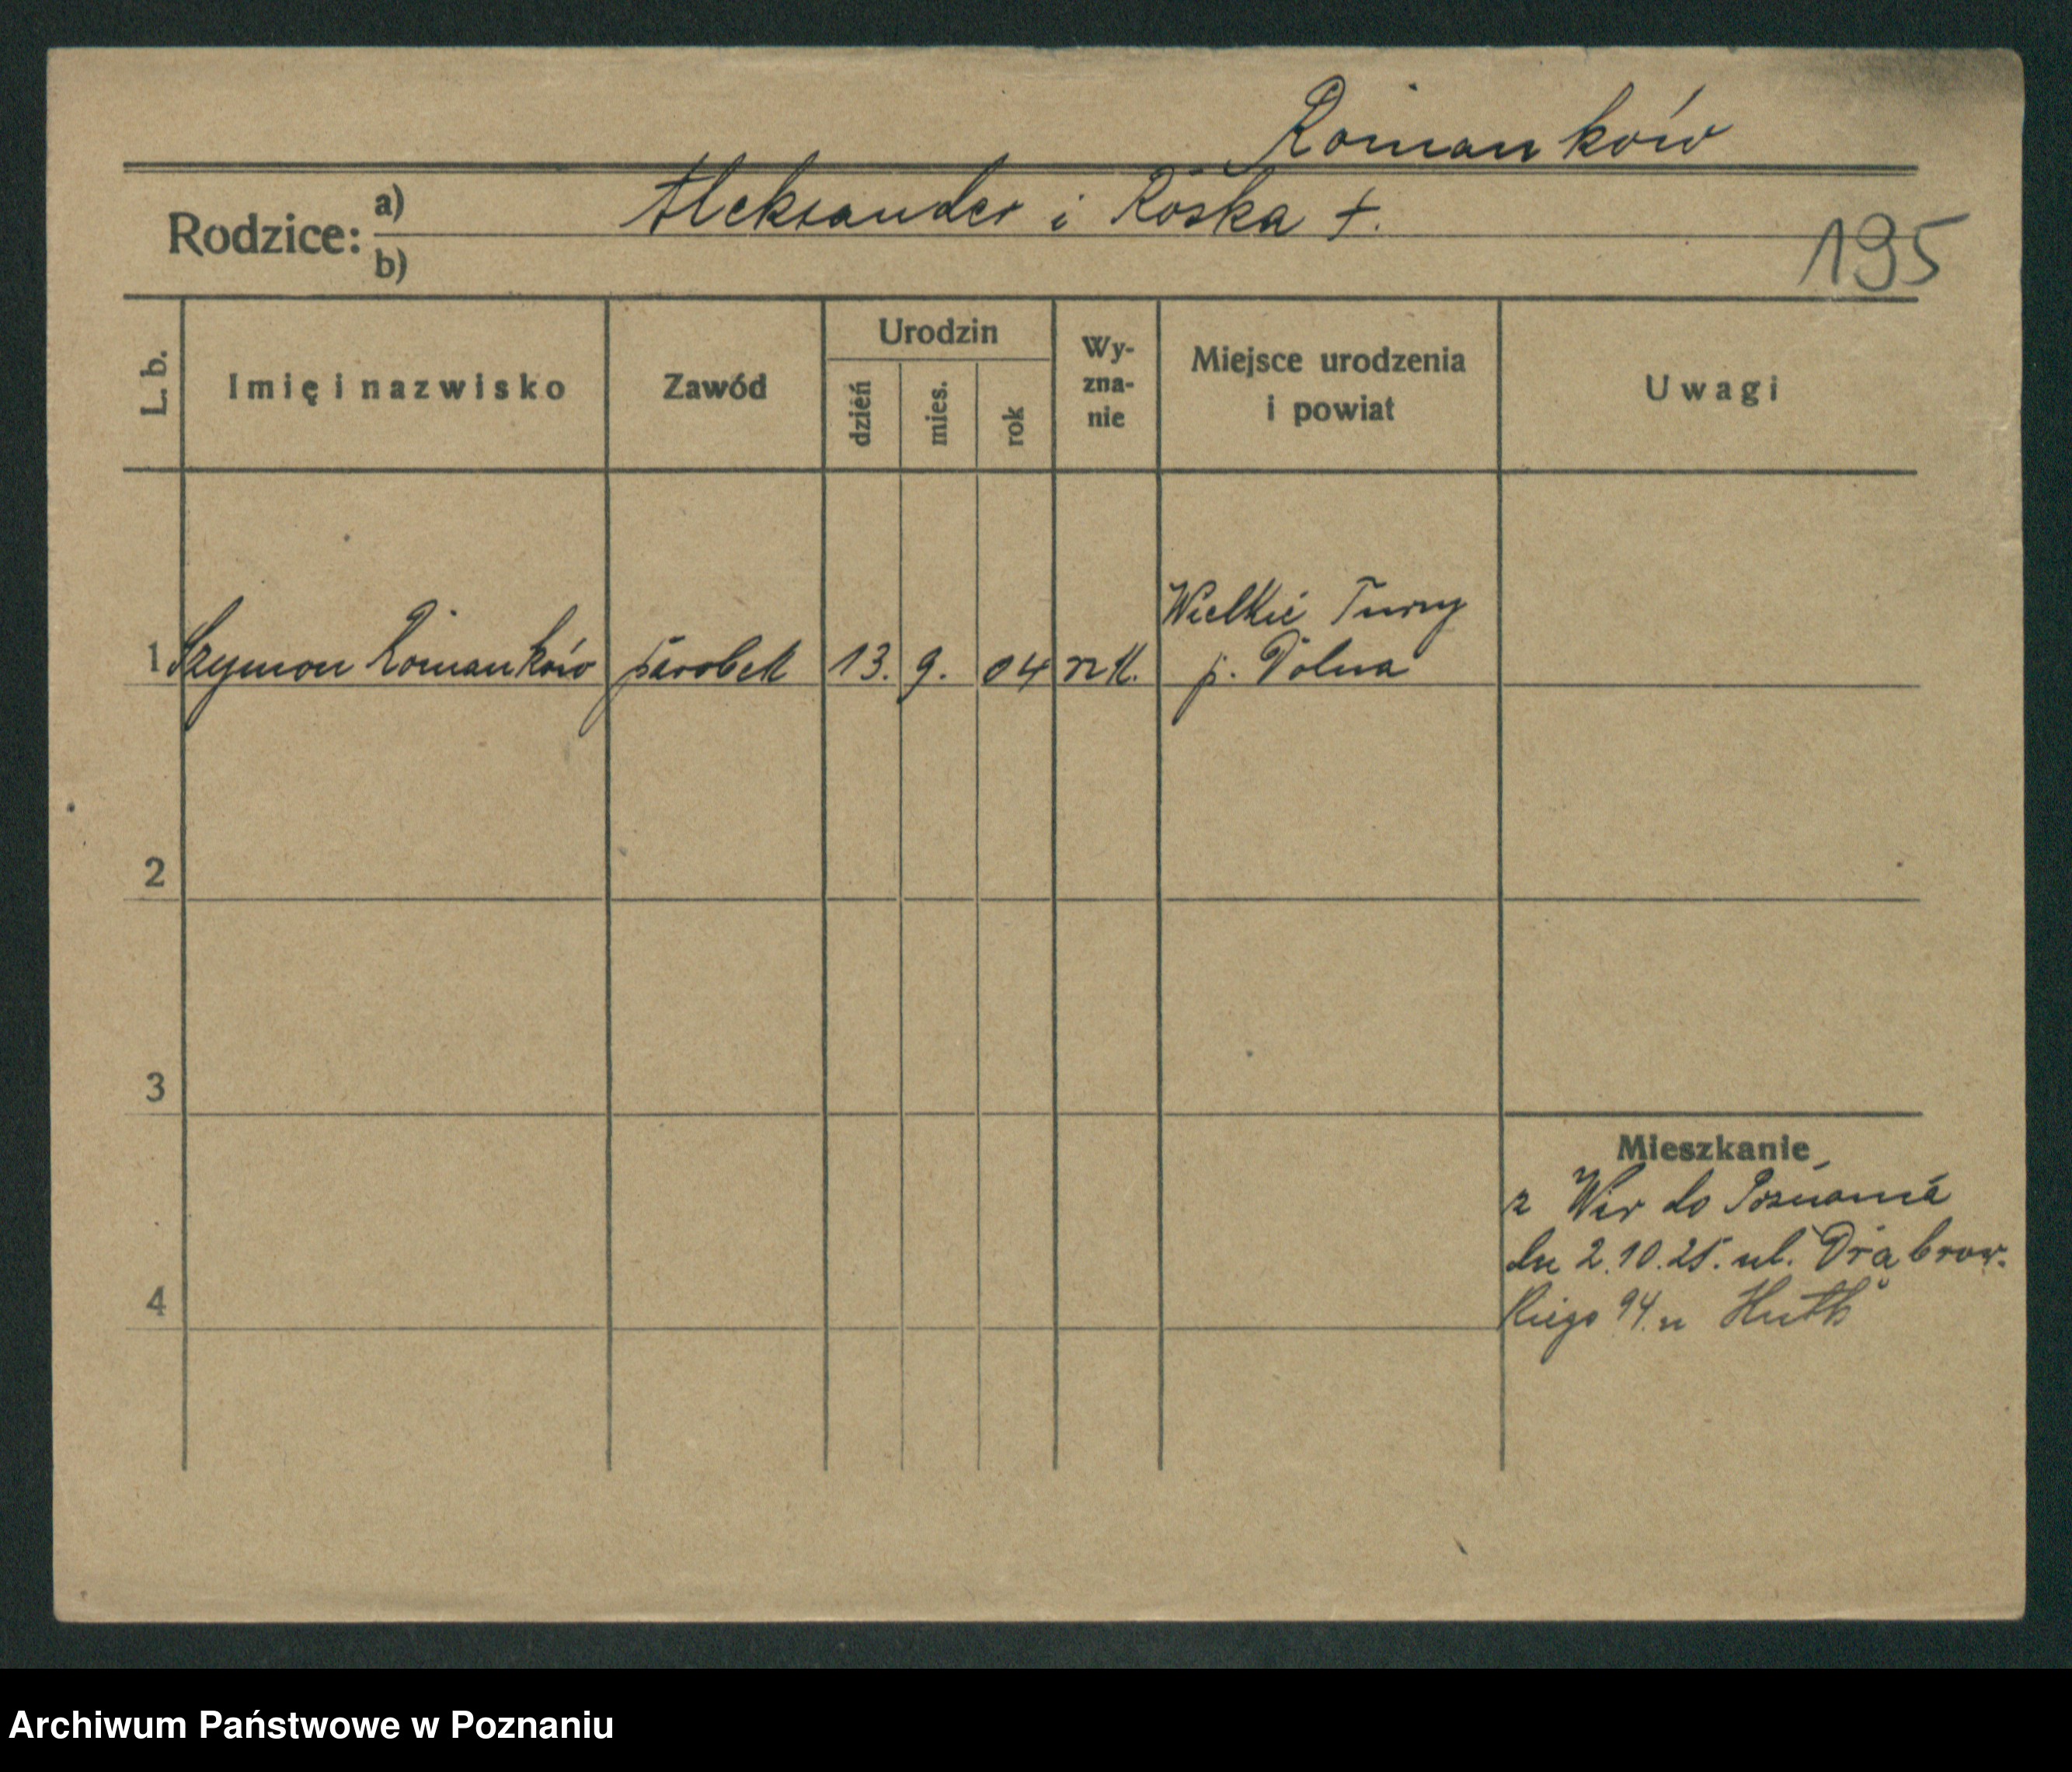 Romanków
Rodzice: a) Aleksander i Róśka +.
b)
195
L. b.
Imię i nazwisko
Zawód
Urodzin
dzień
mies.
rok
Wy-
zna-
nie
Miejsce urodzenia
i powiat
Uwagi
Wielkie Turzy
1 Szymon Romanków parobek 13. 9. 04 rzk. p. Dolna
2
3
4
Mieszkanie
z Wir do Poznania
dn 2.10.25. ul. Drąbrow.
kiego 94. u Huth
Archiwum Państwowe w Poznaniu